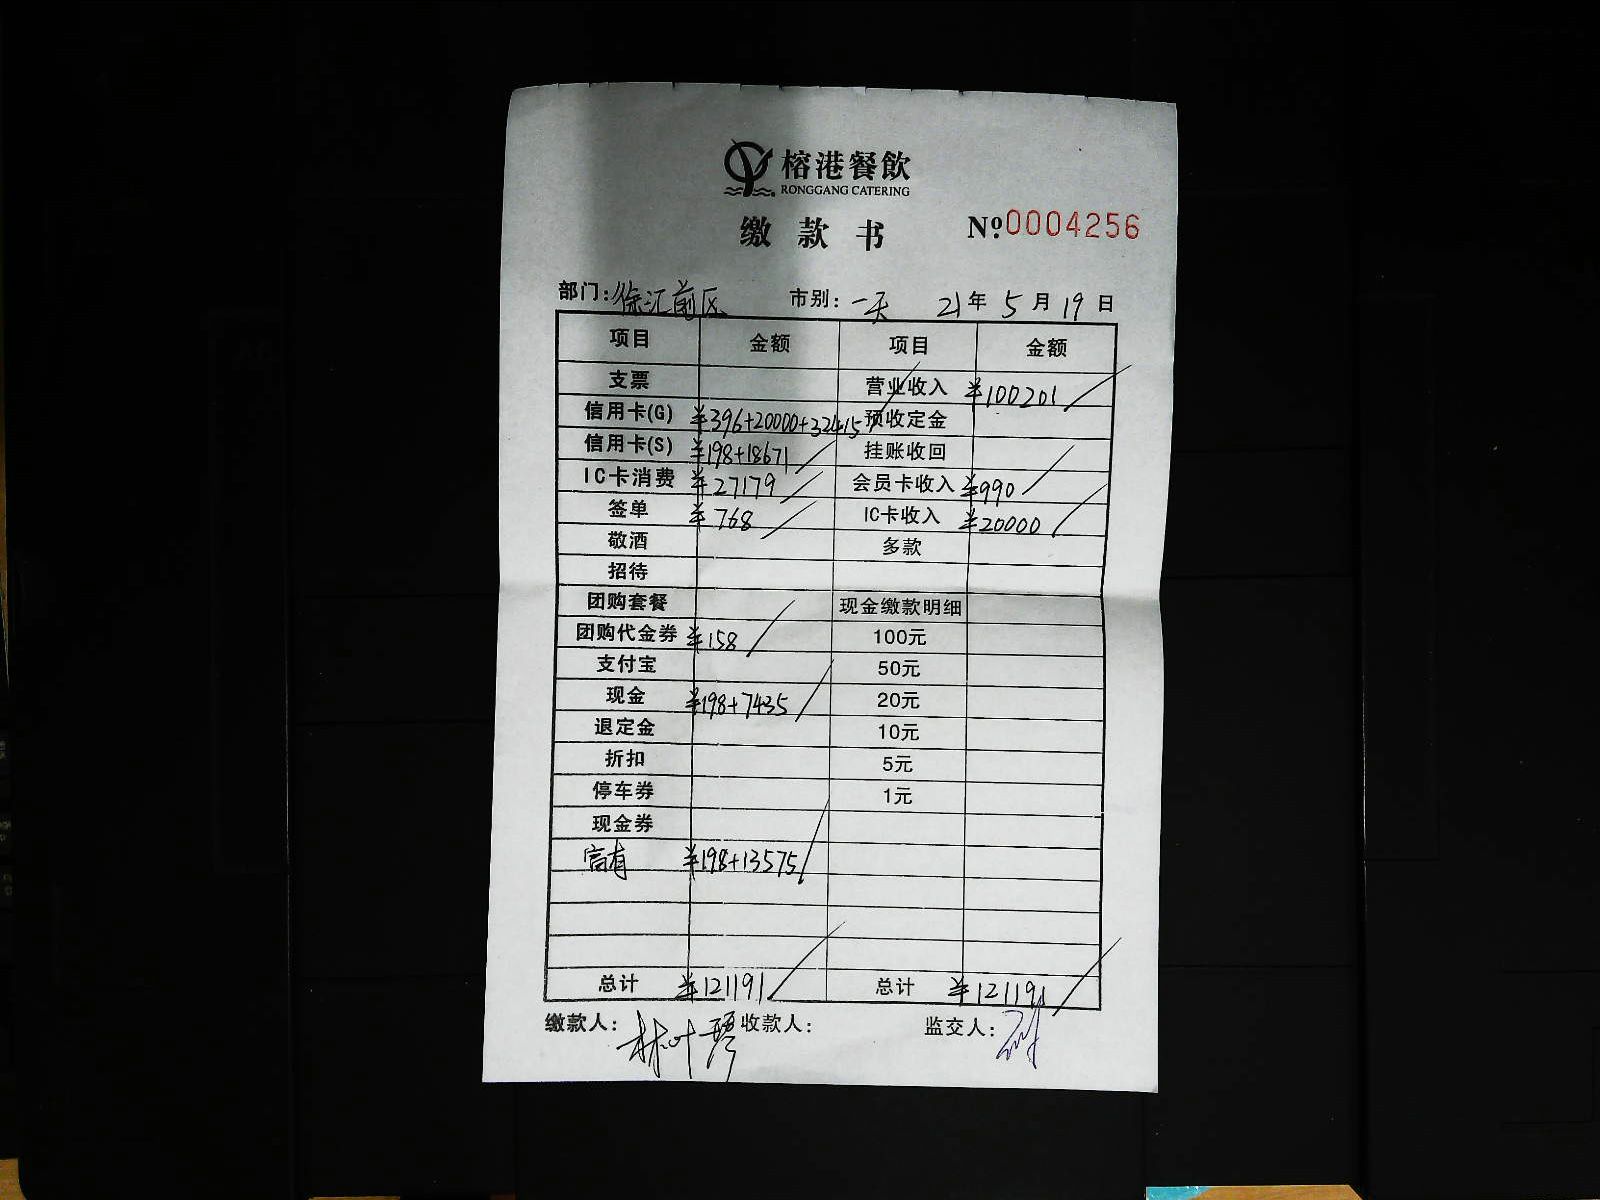 榕港餐飲
RONGGANG CATERING
缴款书 №0004256
部门:徐汇前区 市别:一天 21年5月19日
项目 金额 项目 金额
支票 营业收入 ¥100201
信用卡(G) ¥396+20000+32415 预收定金
信用卡(S) ¥198+18671 挂账收回
IC卡消费 ¥27179 会员卡收入 ¥990
签单 ¥768 IC卡收入 ¥20000
敬酒 多款
招待
团购套餐 现金缴款明细
团购代金券 ¥158 100元
支付宝 50元
现金 ¥198+7435 20元
退定金 10元
折扣 5元
停车券 1元
现金券
¥198+13575
总计 ¥121191 总计 ¥121191
缴款人:林叶琴 收款人: 监交人: